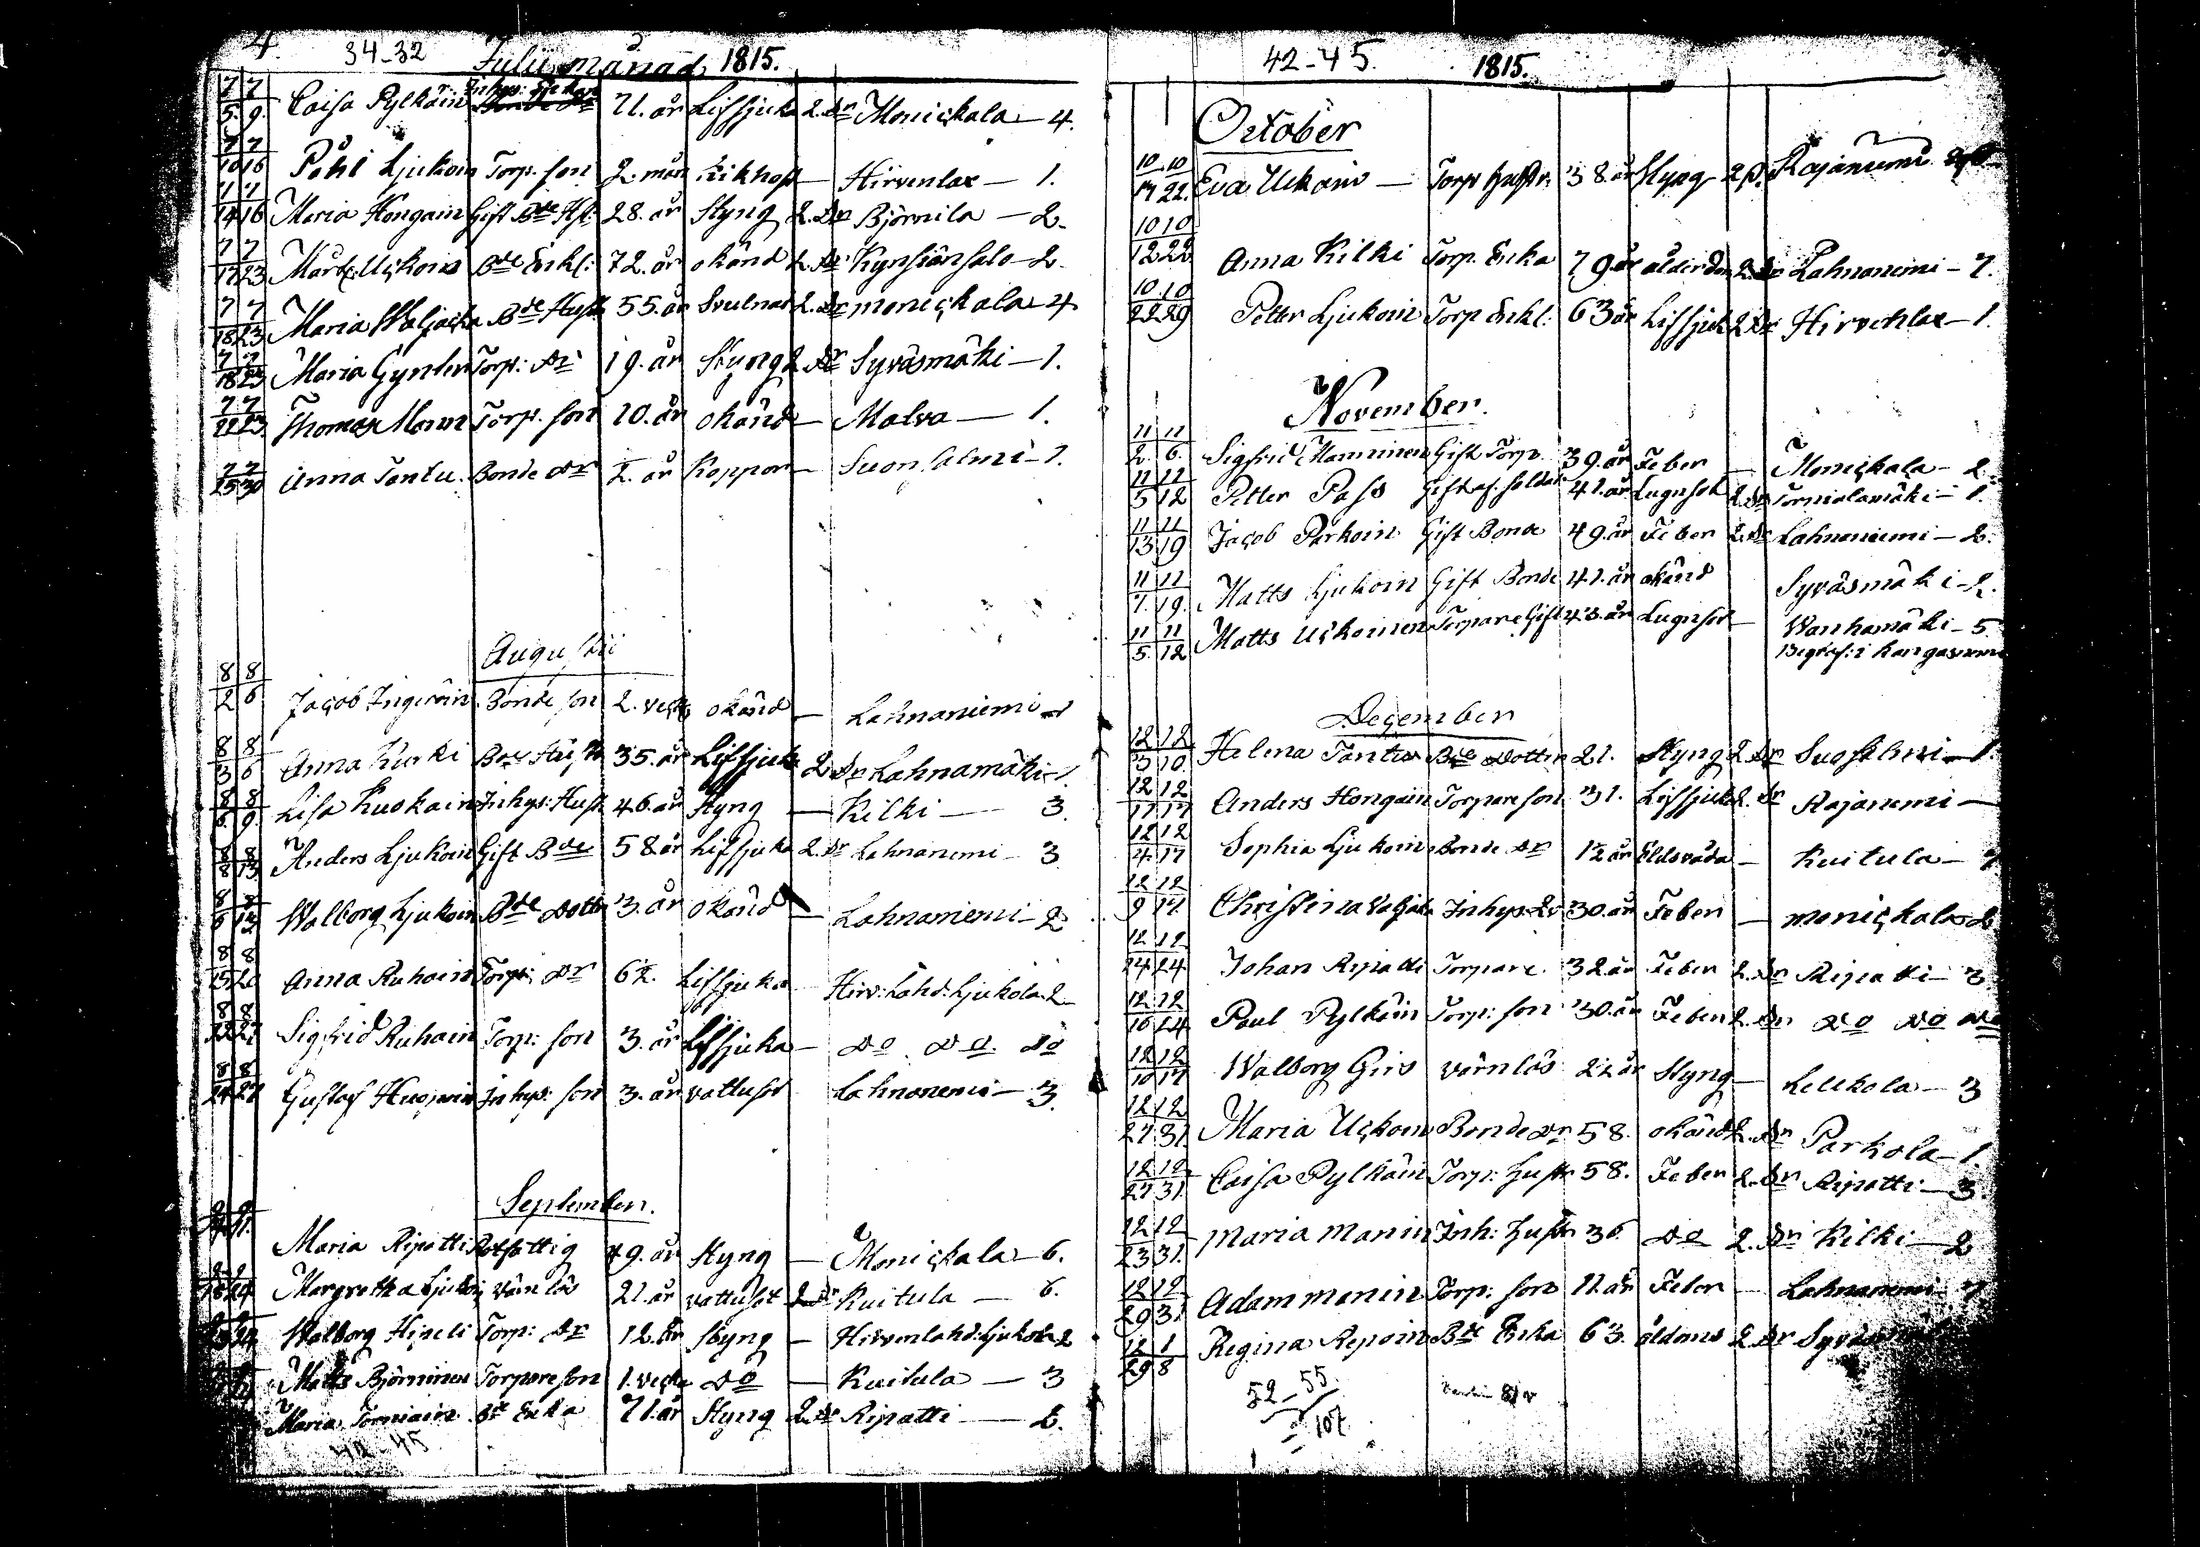 4 34-32 Julii månad 1815.
7 7 Inhys: Enkan
5. 9. Caisa Pylkäin 71. år Lifsjuka 2. Dr Moniskala - 4.
7 7
10 16 Påhl Ljukoin Torp. son 2. mån Kikhost - Hirvenlax - 1.
7 7
14 16 Maria Hongain Gift Bde Hst: 28. år Styng 2. Dr Björnila - 2.
7 7
17 23 Bde Enkl: 72. år okänd 2. Dr Kynsiänsalo - 2.
7 7
18 23 Maria Waljacka Bde Hustr 55. år Svulnad 2. Dr moniskala - 4
7 7
18 23 Maria Gynter Torp: Dr 19. år Styng 2 Dr Syväsmäki - 1.
7 7
22 23 Thomas Manin Torp. son 10. år okänd - Malva - 1.
7 7
25 30 Anna Tantu Bonde Dr ½. år Koppor - Suonsalmi - 1.
Augustii
8 8
2 6 Jacob Ingeroin Bonde son 2. veck okänd - Lahnaniemi - 1
8 8
3 6 Anna Kurki Bde Hustr 35. år Lifsjuka 2 Dr Lahnamäki - 1
8 8
6. 9. Lisa Kuokain Inhys: Hust 46. år Styng - Kilki - 3.
8 8
8 13 Anders Ljukoin Gift Bde 58 år Lifsjuka 2. Dr Lahnanemi - 3
8 8
6 13 Walborg Ljukoin Bde Dotter 3. år okänd - Lahnaniemi - 2
8 8
15 20 Anna Ruhoin Torp: Dr 6½. Lifsjuka Hirv: Lahd: Ljukola 2
8 8
22 27 Sigfrid Ruhain Torp: son 3. år Lifsjuka - Do Do. Do
8 8
24 27 Gustaf Inhys: son 3. år vattusot Lahnanemi - 3.
September.
Maria Ripatti Rotfattig 49. år Styng - Moniskala - 6.
18 24 Margretha Ljukoi värnlös 21. år vattusot 2 Dr Kuitula - 6.
Walborg Hineli Torp: Dr 12. år Styng - Hirvenlahd: Ljukola 2
Matts Björninen Torpare son 1. vecka Do - Kuitula - 3
Maria Torniain Bde Enka 71. år Styng 2 Dr Ripatti - 6.
42 - 45
42-45. 1815.
October
10 10
17 22. Eva Uckoin - Torp hustr: 38. år Styng 2 Rajanemi
10 10
12 22 Anna Kilki Torp. Enka 79 år ålderdom 2. Dr Lahnanemi - 7.
10 10
22 29 Petter Ljukoin Torp Enkl: 63 år Lifsjuk 2 Dr Hirvenlax - 1.
November.
11 11
2. 6. Sigfrid Manninen Gift Torp. 39. år Feber - Moniskala - 2.
11 11
5 12 Petter Pass Gift af: soldat 41. år Lugnsot 2. Dr Torniolamäki - 1.
11 11
13 19 Jacob Parkoin Gift Bonde 49. år Feber 2. Dr Lahnaniemi - 2.
11 11
7. 19. Matts Ljukoin Gift Bonde 41. år okänd Syväsmäki - 2.
11 11
5. 12 Matts Uskoinen Torpare Gift 43. år Lugnsot - Wanhamäki - 5
Begraf: i Kangasnimi
December
12 12
3 10. Helena Tantu Bde Dotter 21. Styng 2 Dr Suosalmi - 1.
12 12
17 17 Anders Hongain Torpare son 31. Lifsjuk 2. Dr Rajanemi -
12 12
4. 17 Sophia Ljukoin Bonde Dr 12 år Eldsvåda - Kuitula - 7
12 12
9 17. Christina Waljak Inhys. Dr 30. år Feber - moniskala 2
12 12
24 24. Johan Ripatti Torpare. 32 år Feber 2. Dr Ripatti - 3
12 12
16 24 Paul Pylkäin Torp: son 30. år Feber 2. Dr Do Do Do
12 12
10 17 Walborg Girs värnlös 22 år Styng - Leukola - 3
12 12
27 31 Maria Uskoin Bonde Dr 58. okänd 2. Dr Parkola - 1.
12 12
27 31. Caisa Pylkäin Torp: hustr 58. Feber 2. Dr Ripatti - 3.
12 12
23 31. Maria Manin Inh: hustr 36 Do 2. Dr Kilki - 2
12 12
29 31. Adam manin Torp: son 11. år Feber - Lahnanemi 7
12 1
29 8 Regina Repoin Bde Enka 63. åldoms 2. Dr
52 - 55.
107.